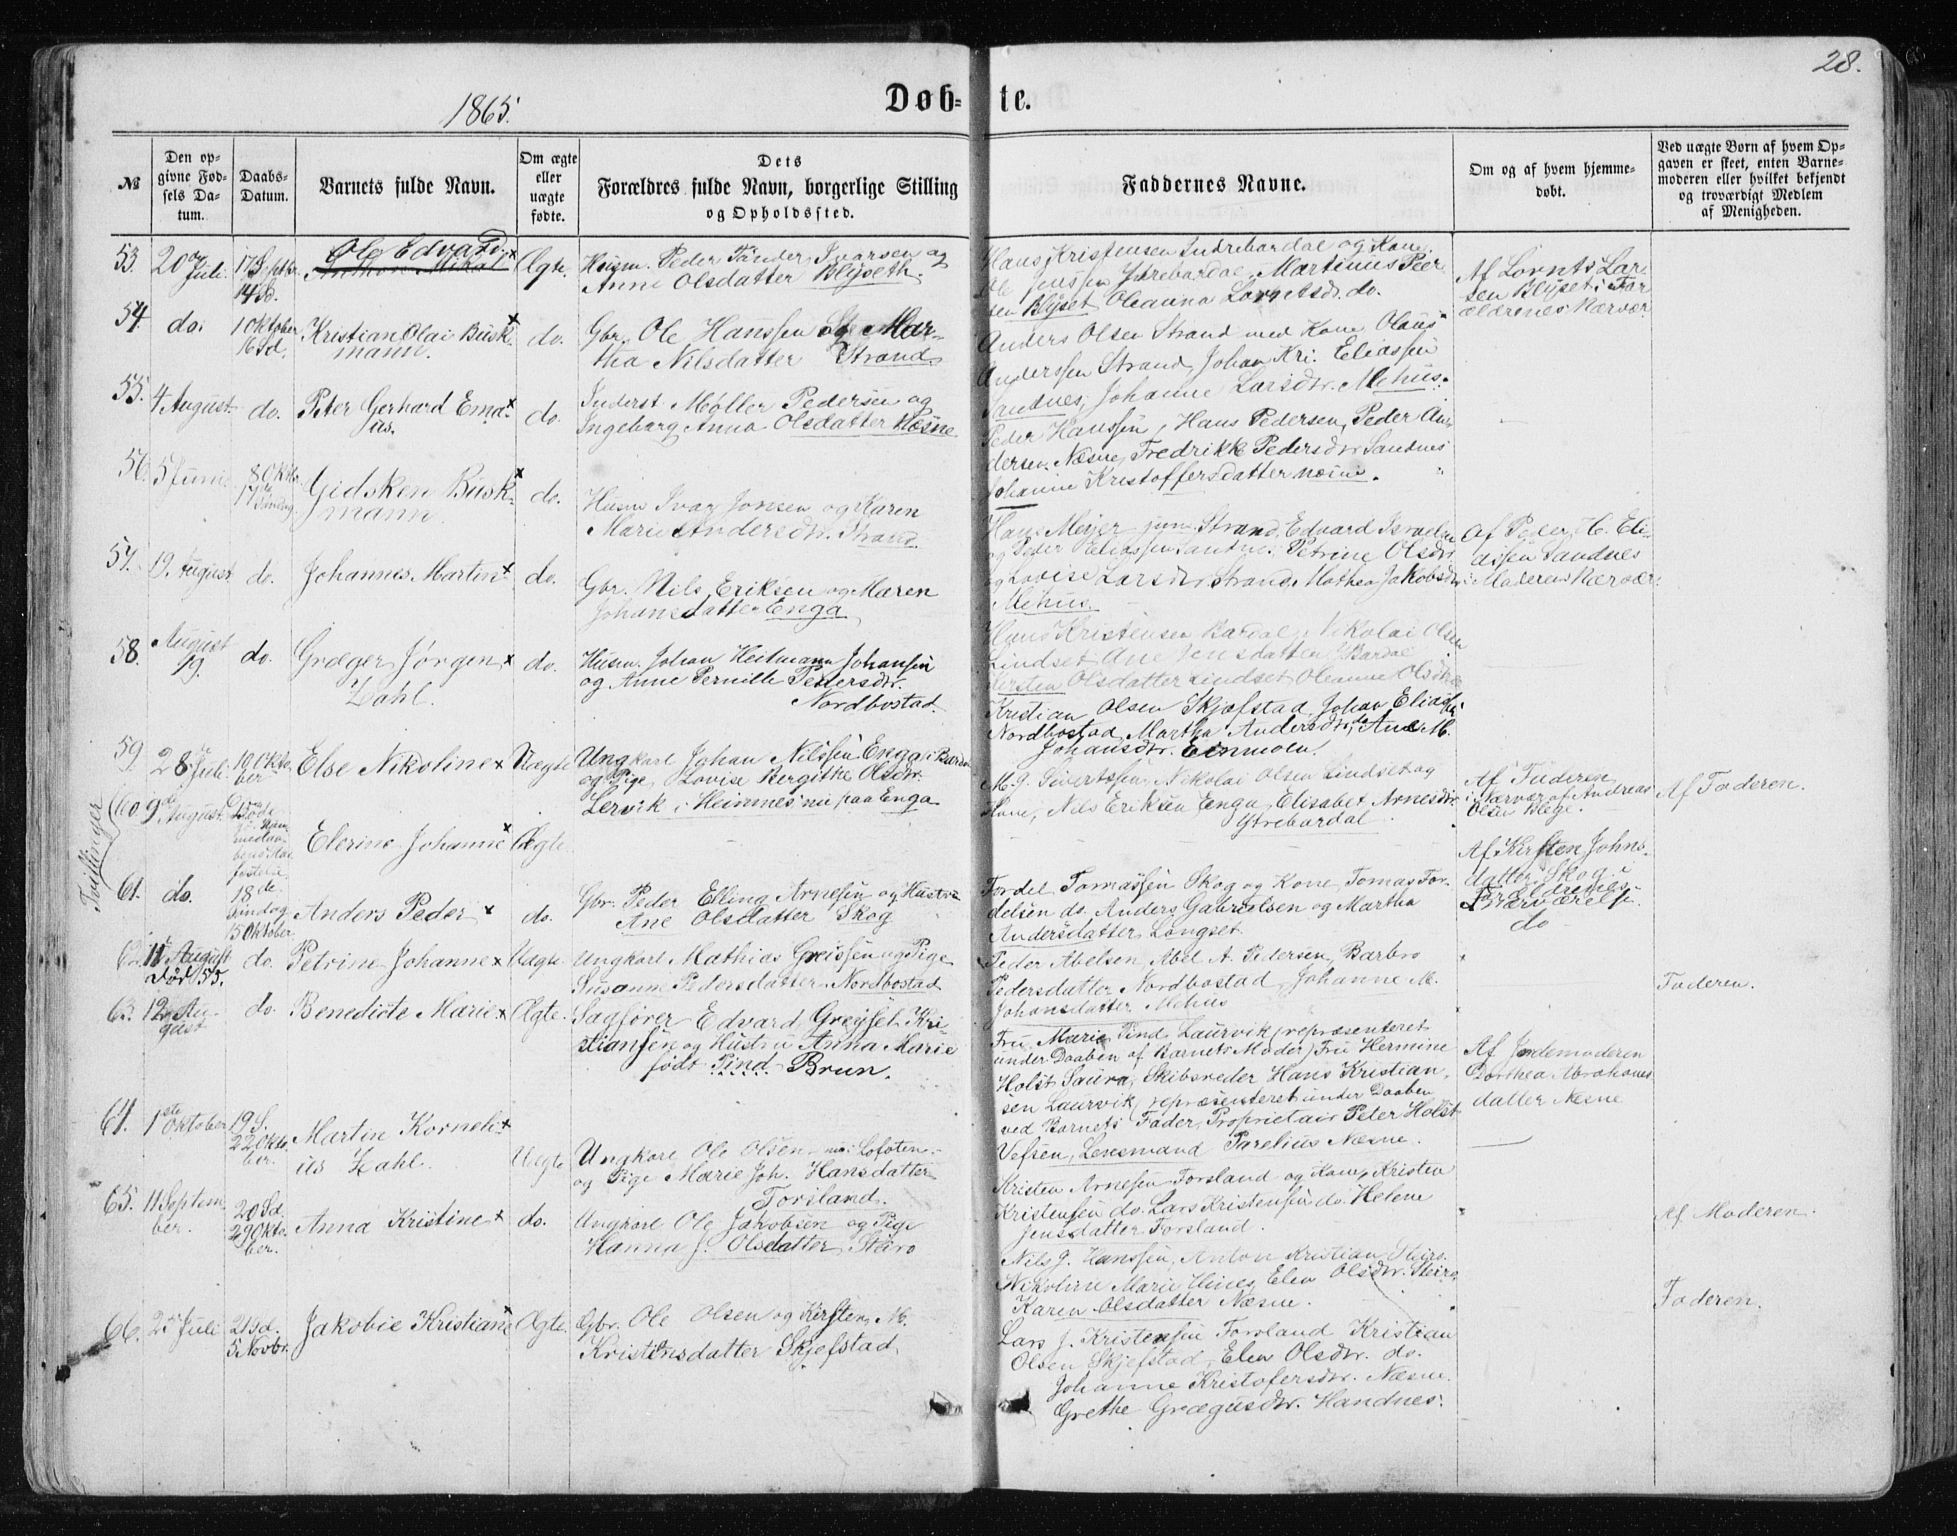 28.
1865.
Døb- te.
№
Den op-
givne Fød-
sels Da-
tum.
Daabs-
Datum.
Barnets fulde Navn.
Om ægte
eller
uægte
fødte.
Dets
Forældres fulde Navn, borgerlige Stilling
og Opholdssted.
Faddernes Navne.
Om og af hvem hjemme-
døbt.
Ved uægte Børn af hvem Op-
gaven er skeet, enten Barne-
moderen eller hvilket bekjendt
og troværdigt Medlem
af Menigheden.
53. 20de Juli. 17 S. Septbr. 14 S.
Ole Edvard x
Anthon Mikal
Ægte.
Husm. Peder Tander Ivarsen og
Anne Olsdatter Blyseth.
Hans Kristensen Indrebardal og Kone.
Ole Jenssen Ytrebardal, Martinus Peer
sen Blyset Oleanna Lorntsdr. do.
Af Lornts Lar-
sen Blyset i For
ældrenes Nærvær
54. do. 1 Oktober 16 Sd.
Kristian Olai Busk- x
mann.
do.
Gbr. Ole Hanssen og Mar-
tha Nilsdatter Strand
Anders Olsen Strand med Kone Olaus
Anderssen Strand, Johan Kri. Eliassen
Sandnes, Johanne Larsdr. Mehus.
55. 4 August do.
Peter Gerhard Ema- x
us.
do.
Inderst Møller Pedersen og
Ingeborg Anna Olsdatter Næsne
Peder Hanssen, Hans Pedersen, Peder An
dersen Næsne, Fredrikke Pedersdr. Sandnes
Johanne Kristoffersdatter Næsne.
56. 5 Juni 8 Oktbr. 17de Søndag
Gidsken Busk- x
mann.
do.
Husm Ivar Jonsen og Karen
Marie Andersdr. Strand
Hans Meijer jun. Strand, Edvard Israelsen
og Peder Eliassen Sandnes, Petrine Olsdr.
og Lovise Larsdr. Strand, Mathea Jakobsdr
Mehus.
Af Peder H. Eli-
assen Sandnes
i Moderens Nærvær
57. 19. August do.
Johannes Martin x
do.
Gbr. Nils Eriksen og Maren
Johansdatter Enga
Hans Kristensen Bardal, Nikolai Olsen
Lindset Ane Jensdatter Y Bardal
Kirsten Olsdatter Lindset Oleanne Olsdtr
58. August 19. do.
Græger Jørgen x
Dahl.
do.
Husm. Johan Heitmann Johansen
og Anne Pernille Pedersdr.
Nordbostad.
Kristian Olsen Skjefstad, Johan Eliassen
Nordbostad, Martha Andersdr. do, Ane M.
Johansdr. Einmoen.
59. 28de Juli. 10 Okto ber
Else Nikoline x
Uægte
Ungkarl Johan Nilssen Enga i Bardal
og Pige Lovise Bergithe Olsdr.
Lervik i Hemnes nu paa Enga
M. J. Sivertssen, Nikolai Olsen Lindset og
Kone, Nils Eriksen Enga, Elisabet Arnesdtr
Ytrebardal.
Af Faderen
i Nærvær af Andreas
Olsen Blege.
Af Faderen.
Tvillinger
60. 9de August.
Elerine Johanne x
Ægte.
Af Kirsten Johns-
datter Skog i
Forældrenes
Nærværelse.
61. do. 18de Søndag 15 Oktober
Anders Peder x
do.
Gbr. Peder Elling Arnesen og Hustru
Ane Olsdatter Skog
Fordel Tomassen Skog og Kone, Tomas For-
delsen do. Anders Gabrielsen og Martha
Andersdatter Langset.
do
62. 11 August do.
død 5/5.
Petrine Johanne x
Uægte.
Ungkarl Mathias Greissen og Pige
Susanne Pedersdatter Nordbostad
Peder Abelsen, Abel A. Pedersen, Barbro
Pedersdatter Nordbostad, Johanne M.
Johansdatter Mehus
Faderen.
63. 12 Au-
gust do.
Benedicte Marie x
Ægte.
Sagfører Edvard Greysel Kri-
stiansen og Hustru Anna Marie
født Pind Brun.
Fru Marie Pind Laurvik (repræsenteret
under Daaben af Barnets Moder) Fru Hermine
Holst Saura, Skibsreder Hans Kristian-
sen Laurvik, repræsenteret under Daaben
ved Barnets Fader, Proprietair Peter Holst
Vefsen, Lensmand Parelius Næsne.
Af Jordemoderen
Dorthea Abrahams
datter Næsne
64. 1ste Oktober 19 S. 22 Okto ber.
Martin Korneli- x
us Dahl.
Uægte
Ungkarl Ole Olsen nu i Lofoten.
og Pige Marie Joh. Hansdatter
Forsland.
Kristen Arnesen Forsland og Kone, Kristen
Kristensen do. Lars Kristensen do. Helene
Jensdatter Forsland.
Af Moderen.
65. 11 Septem
ber. 20 Sd. 29 Okto ber.
Anna Kristine x
do.
Ungkarl Ole Jakobsen og Pige
Hanna J. Olsdatter Steiro
Nils J. Hanssen, Anton Kristian Steiro.
Nikoline Marie Hines, Elen Olsdr. Steiro
Karen Olsdatter Næsne.
Faderen.
66. 25 Juli 21 Sd. 5 Novbr.
Jakobie Kristiane x
Ægte.
Gbr. Ole Olsen og Kirsten M.
Kristensdatter Skjefstad.
Lars J. Kristensen Forsland Kristian
Olsen Skjefstad, Elen Olsdr. do.
Johanne Kristofersdr. Næsne.
Grethe Grægusdr. Handnes.